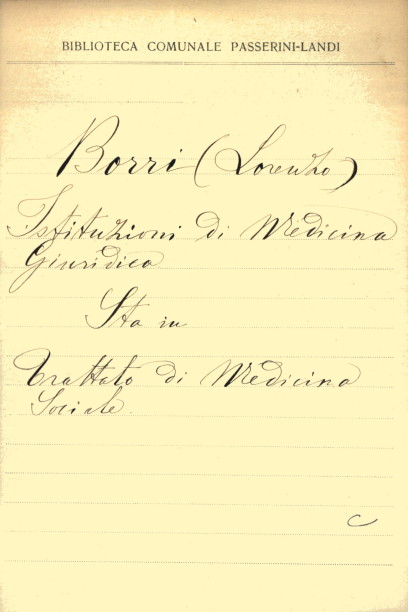 BIBLIOTECA COMUNALE PASSERINI-LANDI
Borri (Lorenzo)
Istituzioni di Medicina
Giuridica
Sta in
Trattato di Medicina
Sociale.
C